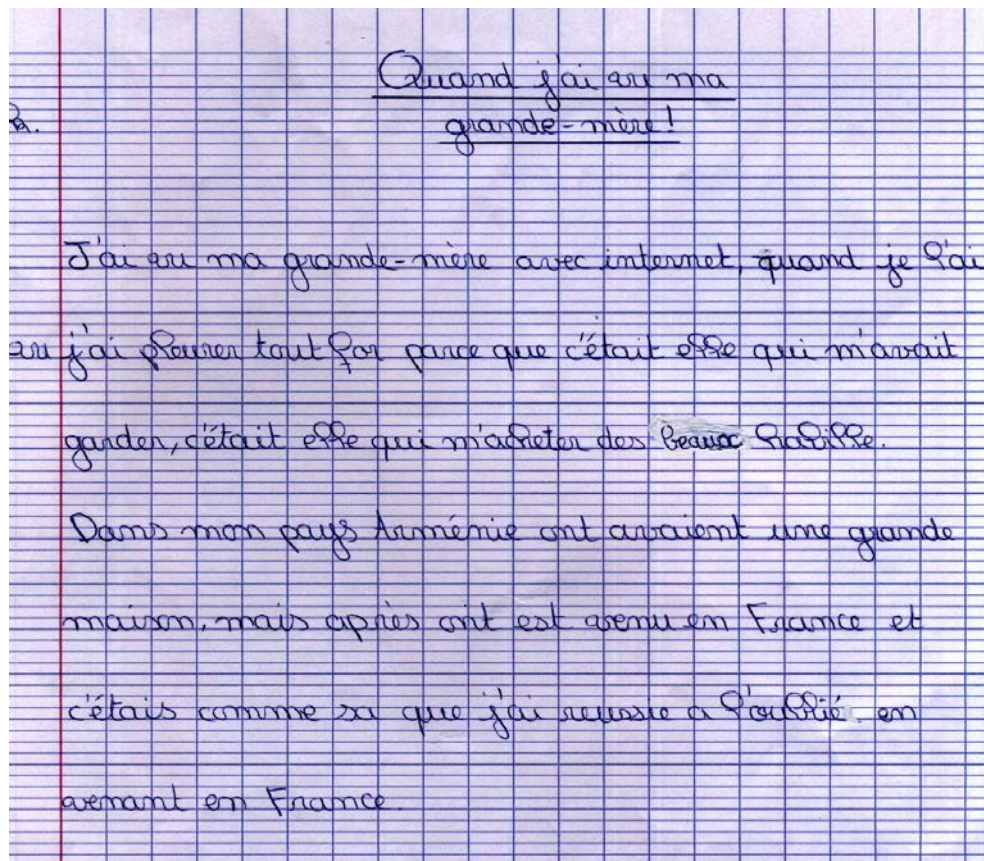 Quand j'ai vu ma
grande-mère!
J'ai vu ma grande-mère avec internet, quand je l'ai
vu j'ai pleurer tout for parce que c'était elle qui m'avait
garder, c'était elle qui m'acheter des beaux habille.
Dans mon pays Arménie ont avaient une grande
maison, mais après ont est venu en France et
c'étais comme sa que j'ai reussie a l'oublié en
venant en France.